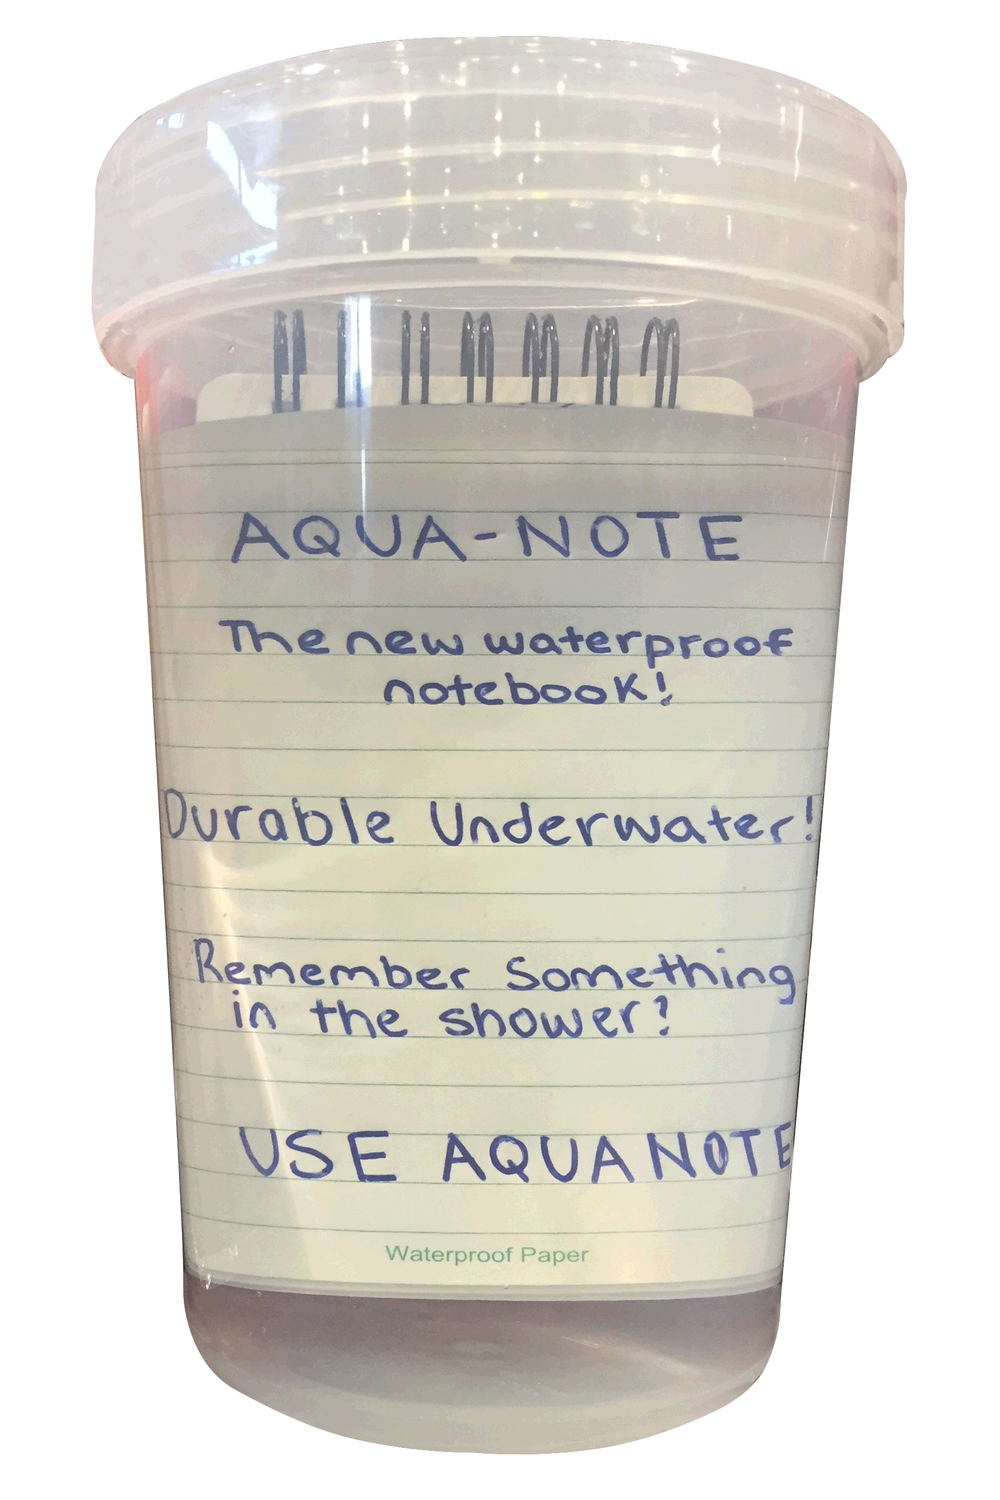 AQUA-NOTE
The new waterproof
notebook!
Durable Underwater!
Remember Something
in the shower?
USE AQUANOTE
Waterproof Paper